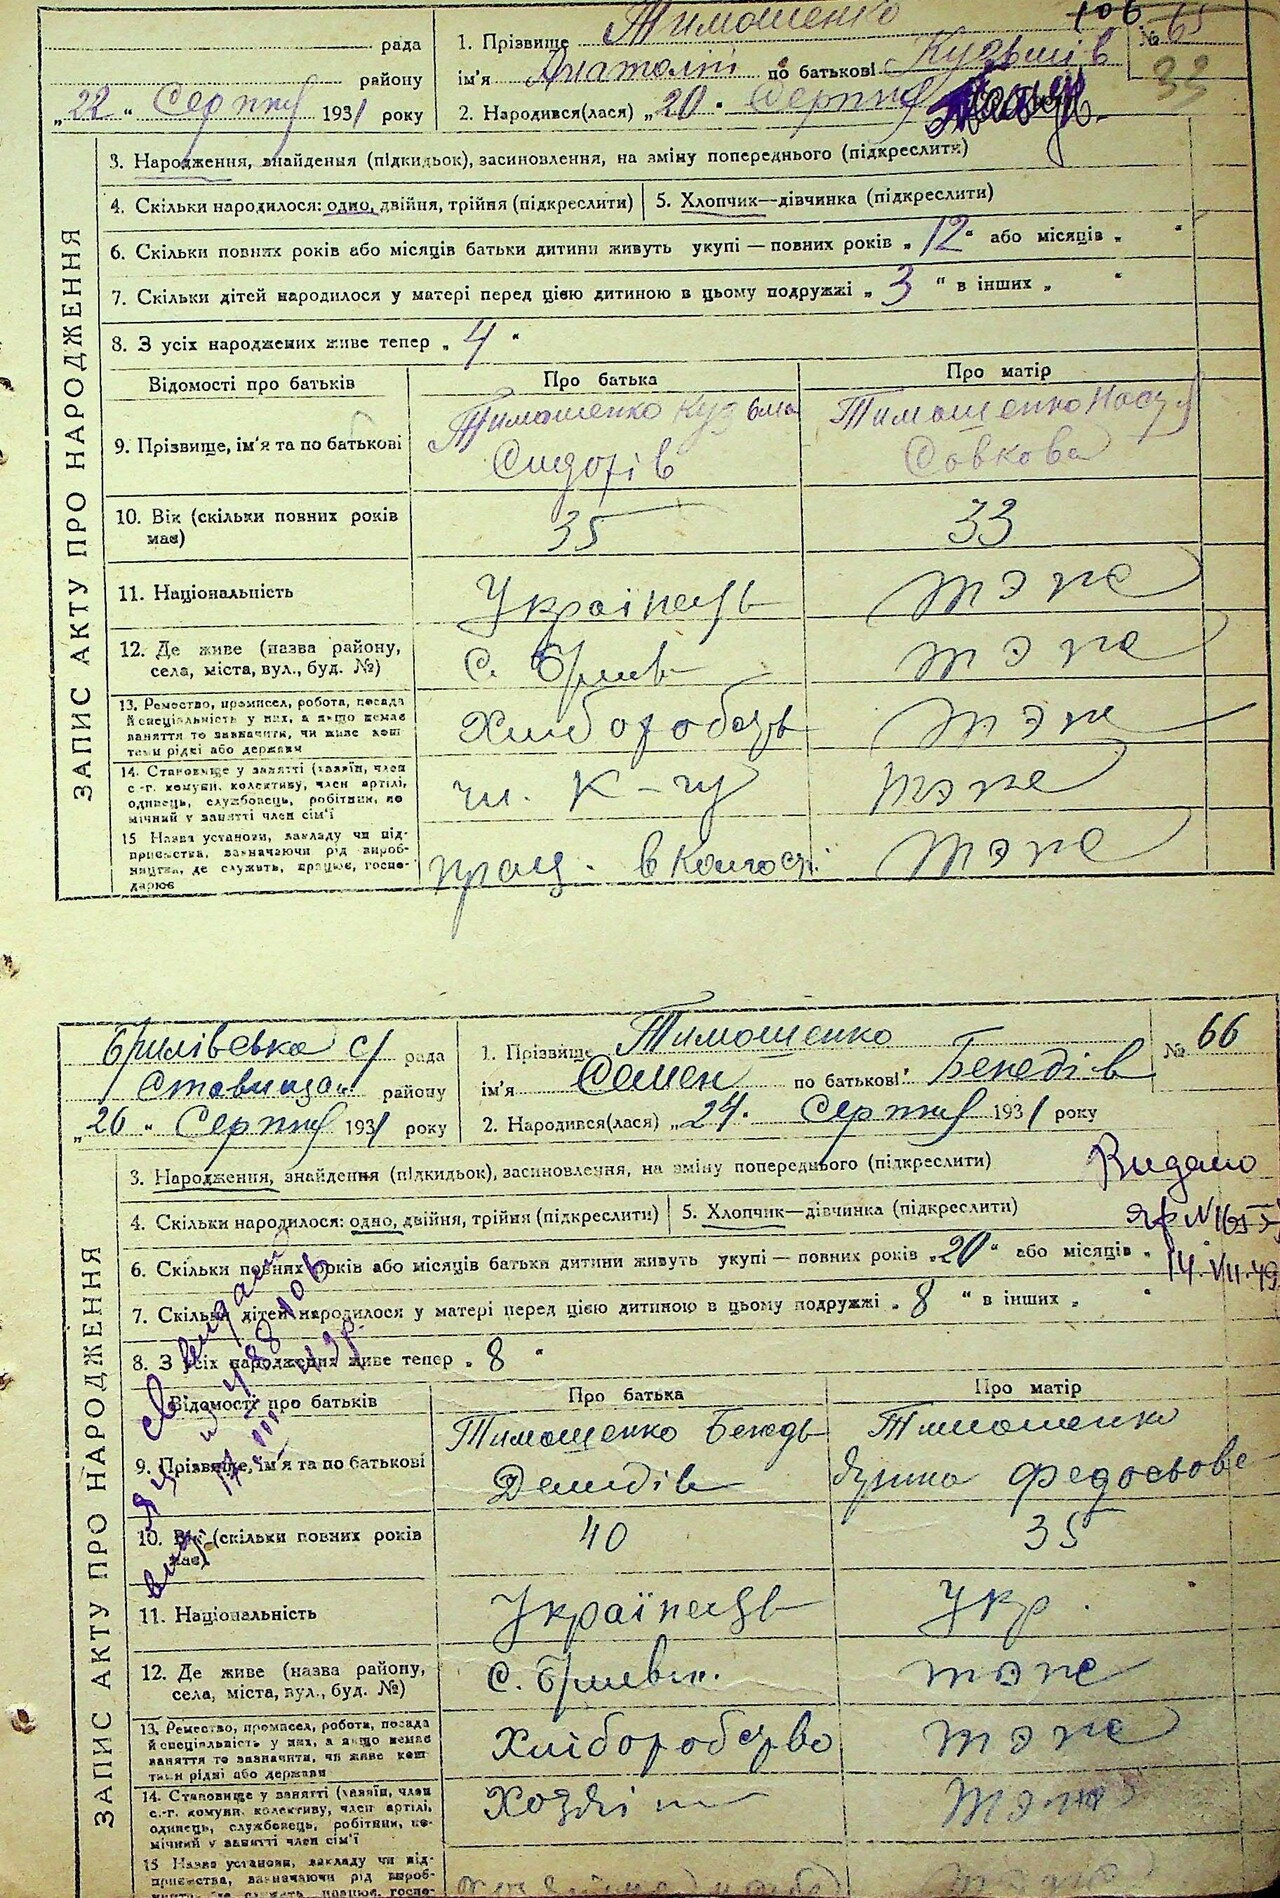 106
рада
району
„22“ Серпня 1931 року
1. Прізвище Тимошенко
ім'я Анатолій по батькові Кузьмів
№ 65
33
2. Народився(лася) „20“ Серпня
3. Народження, знайдення (підкидьок), засиновлення, на зміну попереднього (підкреслити)
4. Скільки народилося: одно, двійня, трійня (підкреслити)
5. Хлопчик—дівчинка (підкреслити)
6. Скільки повних років або місяців батьки дитини живуть укупі — повних років „12“ або місяців „ “
7. Скільки дітей народилося у матері перед цією дитиною в цьому подружжі „3“ в інших „ “
8. З усіх народжених живе тепер „4“
ЗАПИС АКТУ ПРО НАРОДЖЕННЯ
Відомості про батьків
Про батька
Про матір
9. Прізвище, ім'я та по батькові
Тимошенко Кузьма
Сидорів
Тимошенко
Совкова
10. Вік (скільки повних років
має)
35
33
11. Національність
Українець
тэже
12. Де живе (назва району,
села, міста, вул., буд. №)
с. Брилів
тэже
13. Ремество, промисел, робота, посада
й спеціяльність у них, а якщо немає
заняття то зазначити, чи живе кош
тами рідні або держави
Хлібороб
тэже
14. Становище у занятті (хазяїн, член
с.-г. комуни, колективу, член артілі,
одинець, службовець, робітник, по
мічний у занятті член сім'ї
чл. к-гу
тэже
15 Назва установи, закладу чи під-
приємства, зазначаючи рід вироб-
ництва, де служить, працює, госпо-
дарює
прац. в колгоспі
тэже
Брилівська с/ рада
Ставищан району
„26“ Серпня 1931 року
1. Прізвище Тимошенко
ім'я Семен по батькові Бенедів
№ 66
2. Народився(лася) „24“ Серпня 1931 року
3. Народження, знайдення (підкидьок), засиновлення, на зміну попереднього (підкреслити)
Видано
4. Скільки народилося: одно, двійня, трійня (підкреслити)
5. Хлопчик—дівчинка (підкреслити)
14-VII-49
6. Скільки повних років або місяців батьки дитини живуть укупі — повних років „20“ або місяців „ “
7. Скільки дітей народилося у матері перед цією дитиною в цьому подружжі „8“ в інших „ “
8. З усіх народжених живе тепер „8“
ЗАПИС АКТУ ПРО НАРОДЖЕННЯ
Відомості про батьків
Про батька
Про матір
9. Прізвище, ім'я та по батькові
Тимошенко Бенедь
Демидів
Тимошенко
Федосьова
10. Вік (скільки повних років
має)
40
35
11. Національність
Українець
Укр.
12. Де живе (назва району,
села, міста, вул., буд. №)
с. Брилівк.
тэже
13. Ремество, промисел, робота, посада
й спеціяльність у них, а якщо немає
заняття то зазначити, чи живе кош
тами рідні або держави
Хліборобство
тэже
14. Становище у занятті (хазяїн, член
с.-г. комуни, колективу, член артілі,
одинець, службовець, робітник, по-
мічний у занятті член сім'ї
Хозяїн
тэже
15 Назва установи, закладу чи під-
приємства, зазначаючи рід вироб-
ництва, де служить, працює, госпо-